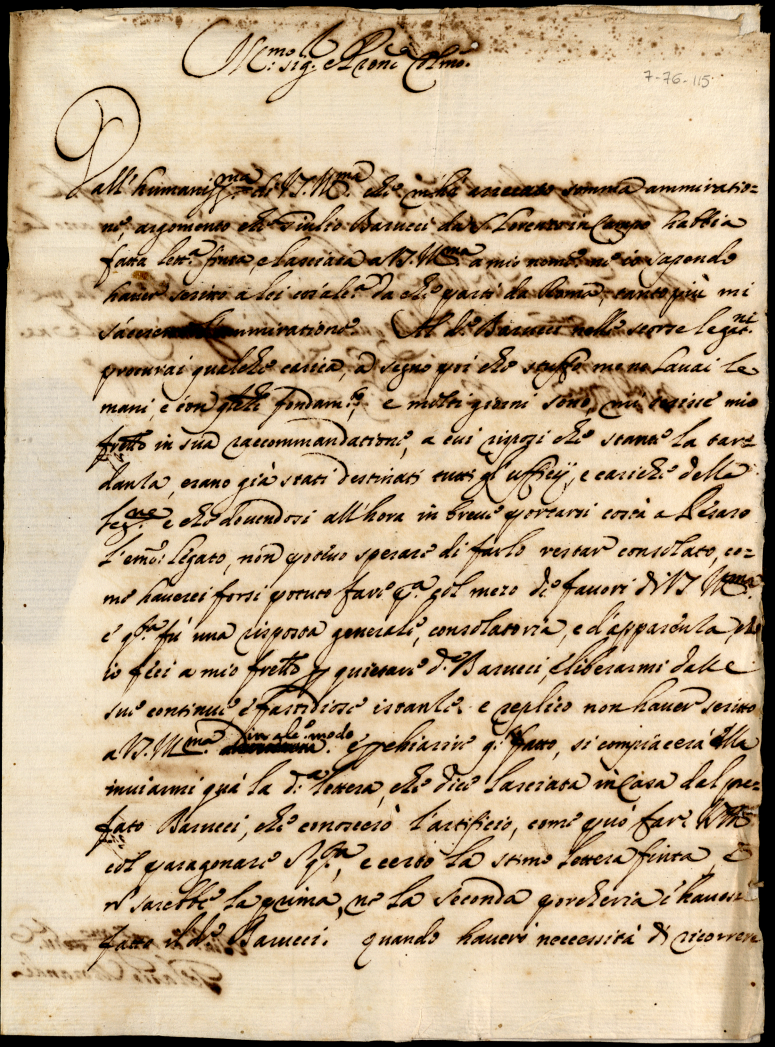 Ill.mo Sig.r e Pron Colmo.
7-76-115
Dall'humaniss.ma di V.S. Ill.ma che mi hà arrecato somma ammiratio=
ne, argomento che Giulio Barucci da S. Lorenzo in Campo habbia
fatta lett.a finta, e lasciata a V.S. Ill.ma a mio nome, ne io sapendo
haver scritto a lei coriale da che partì da Roma, tanto più mi
s'accresce l'ammiratione. Al d.o Barucci nelle scorse legat.ni
procurai qualche carica, à segno poi che stuffo me ne lavai le
mani e con qualche fondam.to, e molti giorni sono, mi scrisse mio
frello in sua raccommandatione, a cui risposi che stante la tar=
danza, erano già stati destinati tutti gl'uffitij, e cariche della
leg.ne e che dovendosi all'hora in breve portarsi costà a Pesaro
l'emo: legato, non potevo sperare di farlo restar consolato, co=
me haverei forsi potuto fare p.a col mezo de favori di V.S. Ill.ma
e q.sta fù una risposta generale, consolatoria, e d'apparenza, che
io feci a mio frello p quietare d.o Barucci, e liberarmi dalle
sue continue e fastidiose istanze, e replico non haver scritto
a V.S. Ill.ma in tale modo e p chiarir q.sto fatto, si compiacerà Ella
inviarmi quà la d.a lettera, che dice lasciata in Casa dal pre=
fato Barucci, che conoscerò l'artificio, come può far V.S. Ill.ma
col paragonare q.sta, e certo la stimo lettera finta, e
n sarebbe la prima, ne la seconda porcheria c'havesse
fatto il d.o Barucci. quando haverò necessità di ricorrere